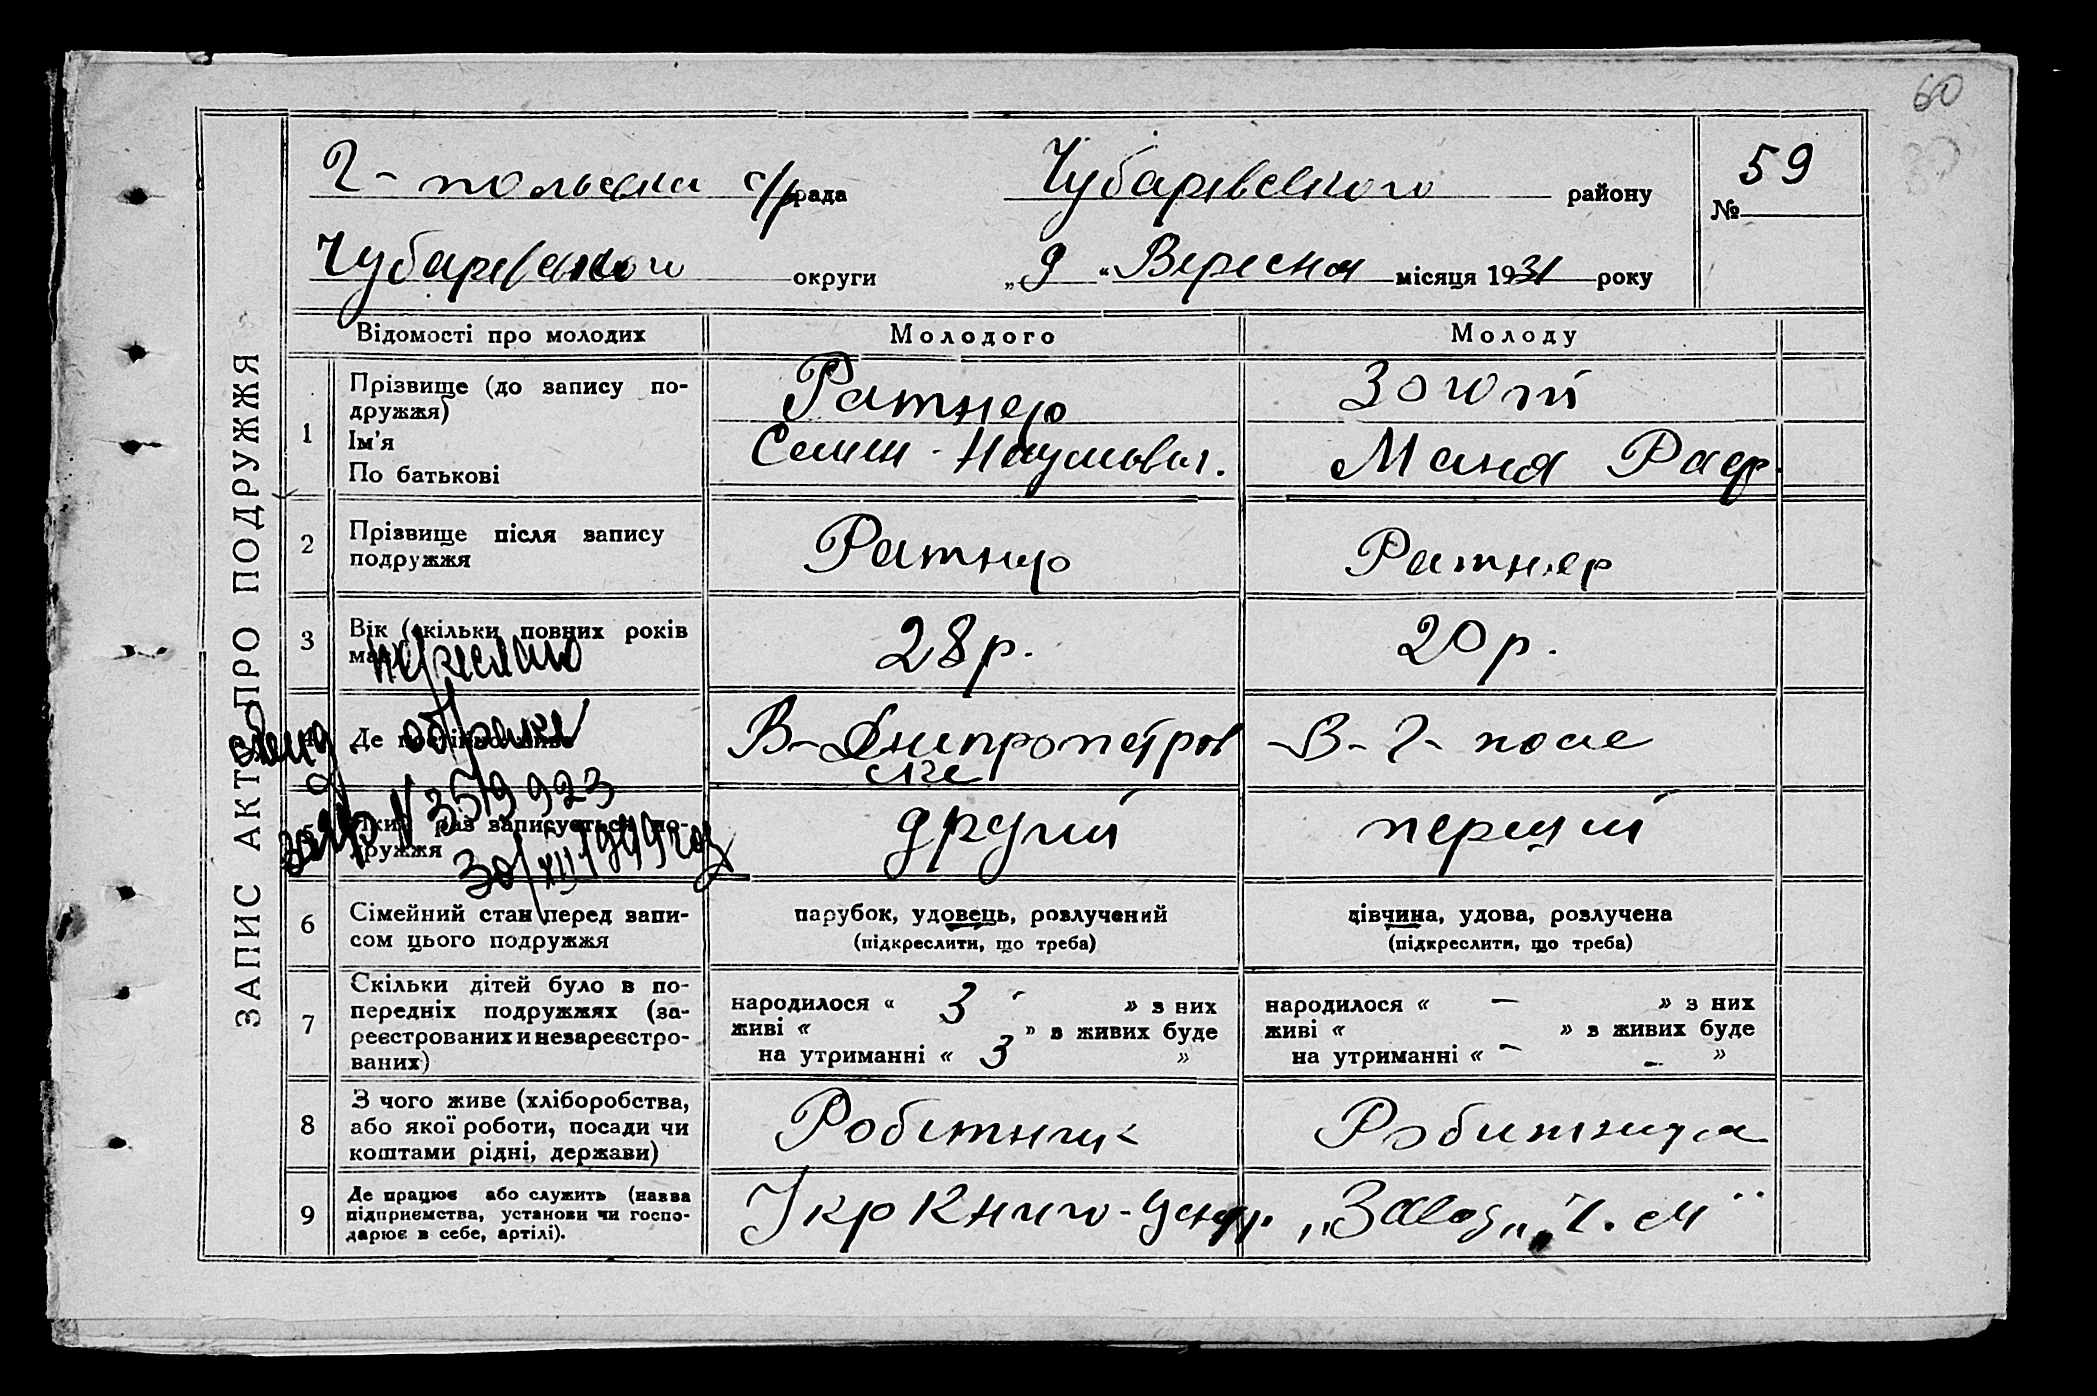 60
59
№
Г-польська с/рада Чубарівського району
Чубарівського округи „9“ Вересня місяця 1931 року
ЗАПИС АКТ ПРО ПОДРУЖЖЯ
Відомості про молодих Молодого Молоду
1 Прізвище (до запису по-
дружжя)
Ратнер
Ім'я
По батькові
Маня Раф.
2 Прізвище після запису
подружжя
Ратнер Ратнер
3 Вік (скільки повних років
має)
28 р. 20 р.
Де постійно живе
В-Дніпропетров
ске
В-Г-поле
5 Який раз записується по-
дружжя
другий перший
N 3519923
30/XII 1949
6 Сімейний стан перед запи-
сом цього подружжя
парубок, удовець, розлучений
(підкреслити, що треба)
дівчина, удова, розлучена
(підкреслити, що треба)
7 Скільки дітей було в по-
передніх подружжях (за-
реєстрованих и незареєстро-
ваних)
народилося « 3 » з них
живі « » в живих буде
на утриманні « 3 »
народилося « — » з них
живі « » в живих буде
на утриманні « — »
8 З чого живе (хліборобства,
або якої роботи, посади чи
коштами рідні, держави)
Робітник Робітниця
9 Де працює або служить (назва
підприємства, установи чи госпо-
дарює в себе, артілі).
УкрКниго-